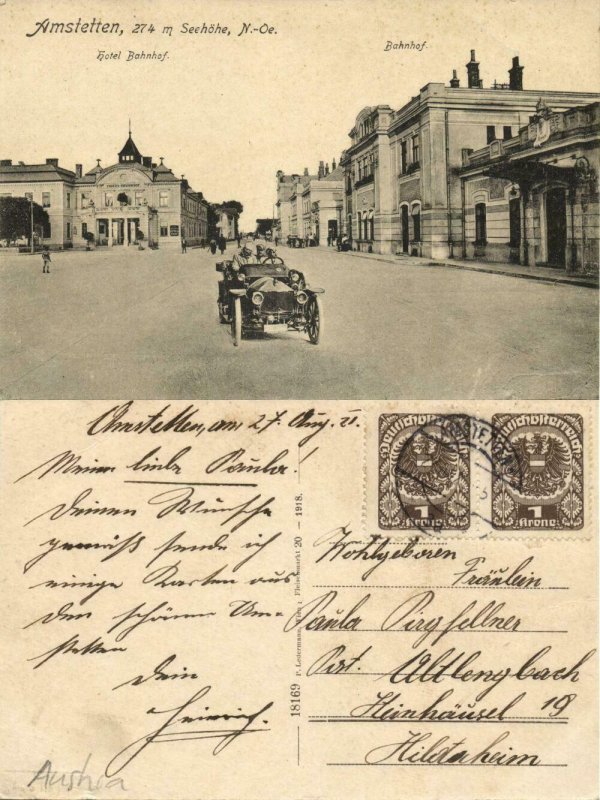 Amstetten, 274 m Seehöhe, N.-Oe.
Hotel Bahnhof.
Bahnhof.
Amstetten, am 27. Aug. 21.
Meine liebe Paula!
Deinem Wunsche
gemäß sende ich
einige Karten aus
dem schönen Am-
stetten
Dein
Heinrich.
18169 P. Ledermann, Wien I. Fleischmarkt 20 — 1918.
Deutschösterreich
1
Krone
Deutschösterreich
1
Krone
Wohlgeboren
Fräulein
Paula Pirgfellner
Post. Altlengbach
Heinhäusel 19
Austria